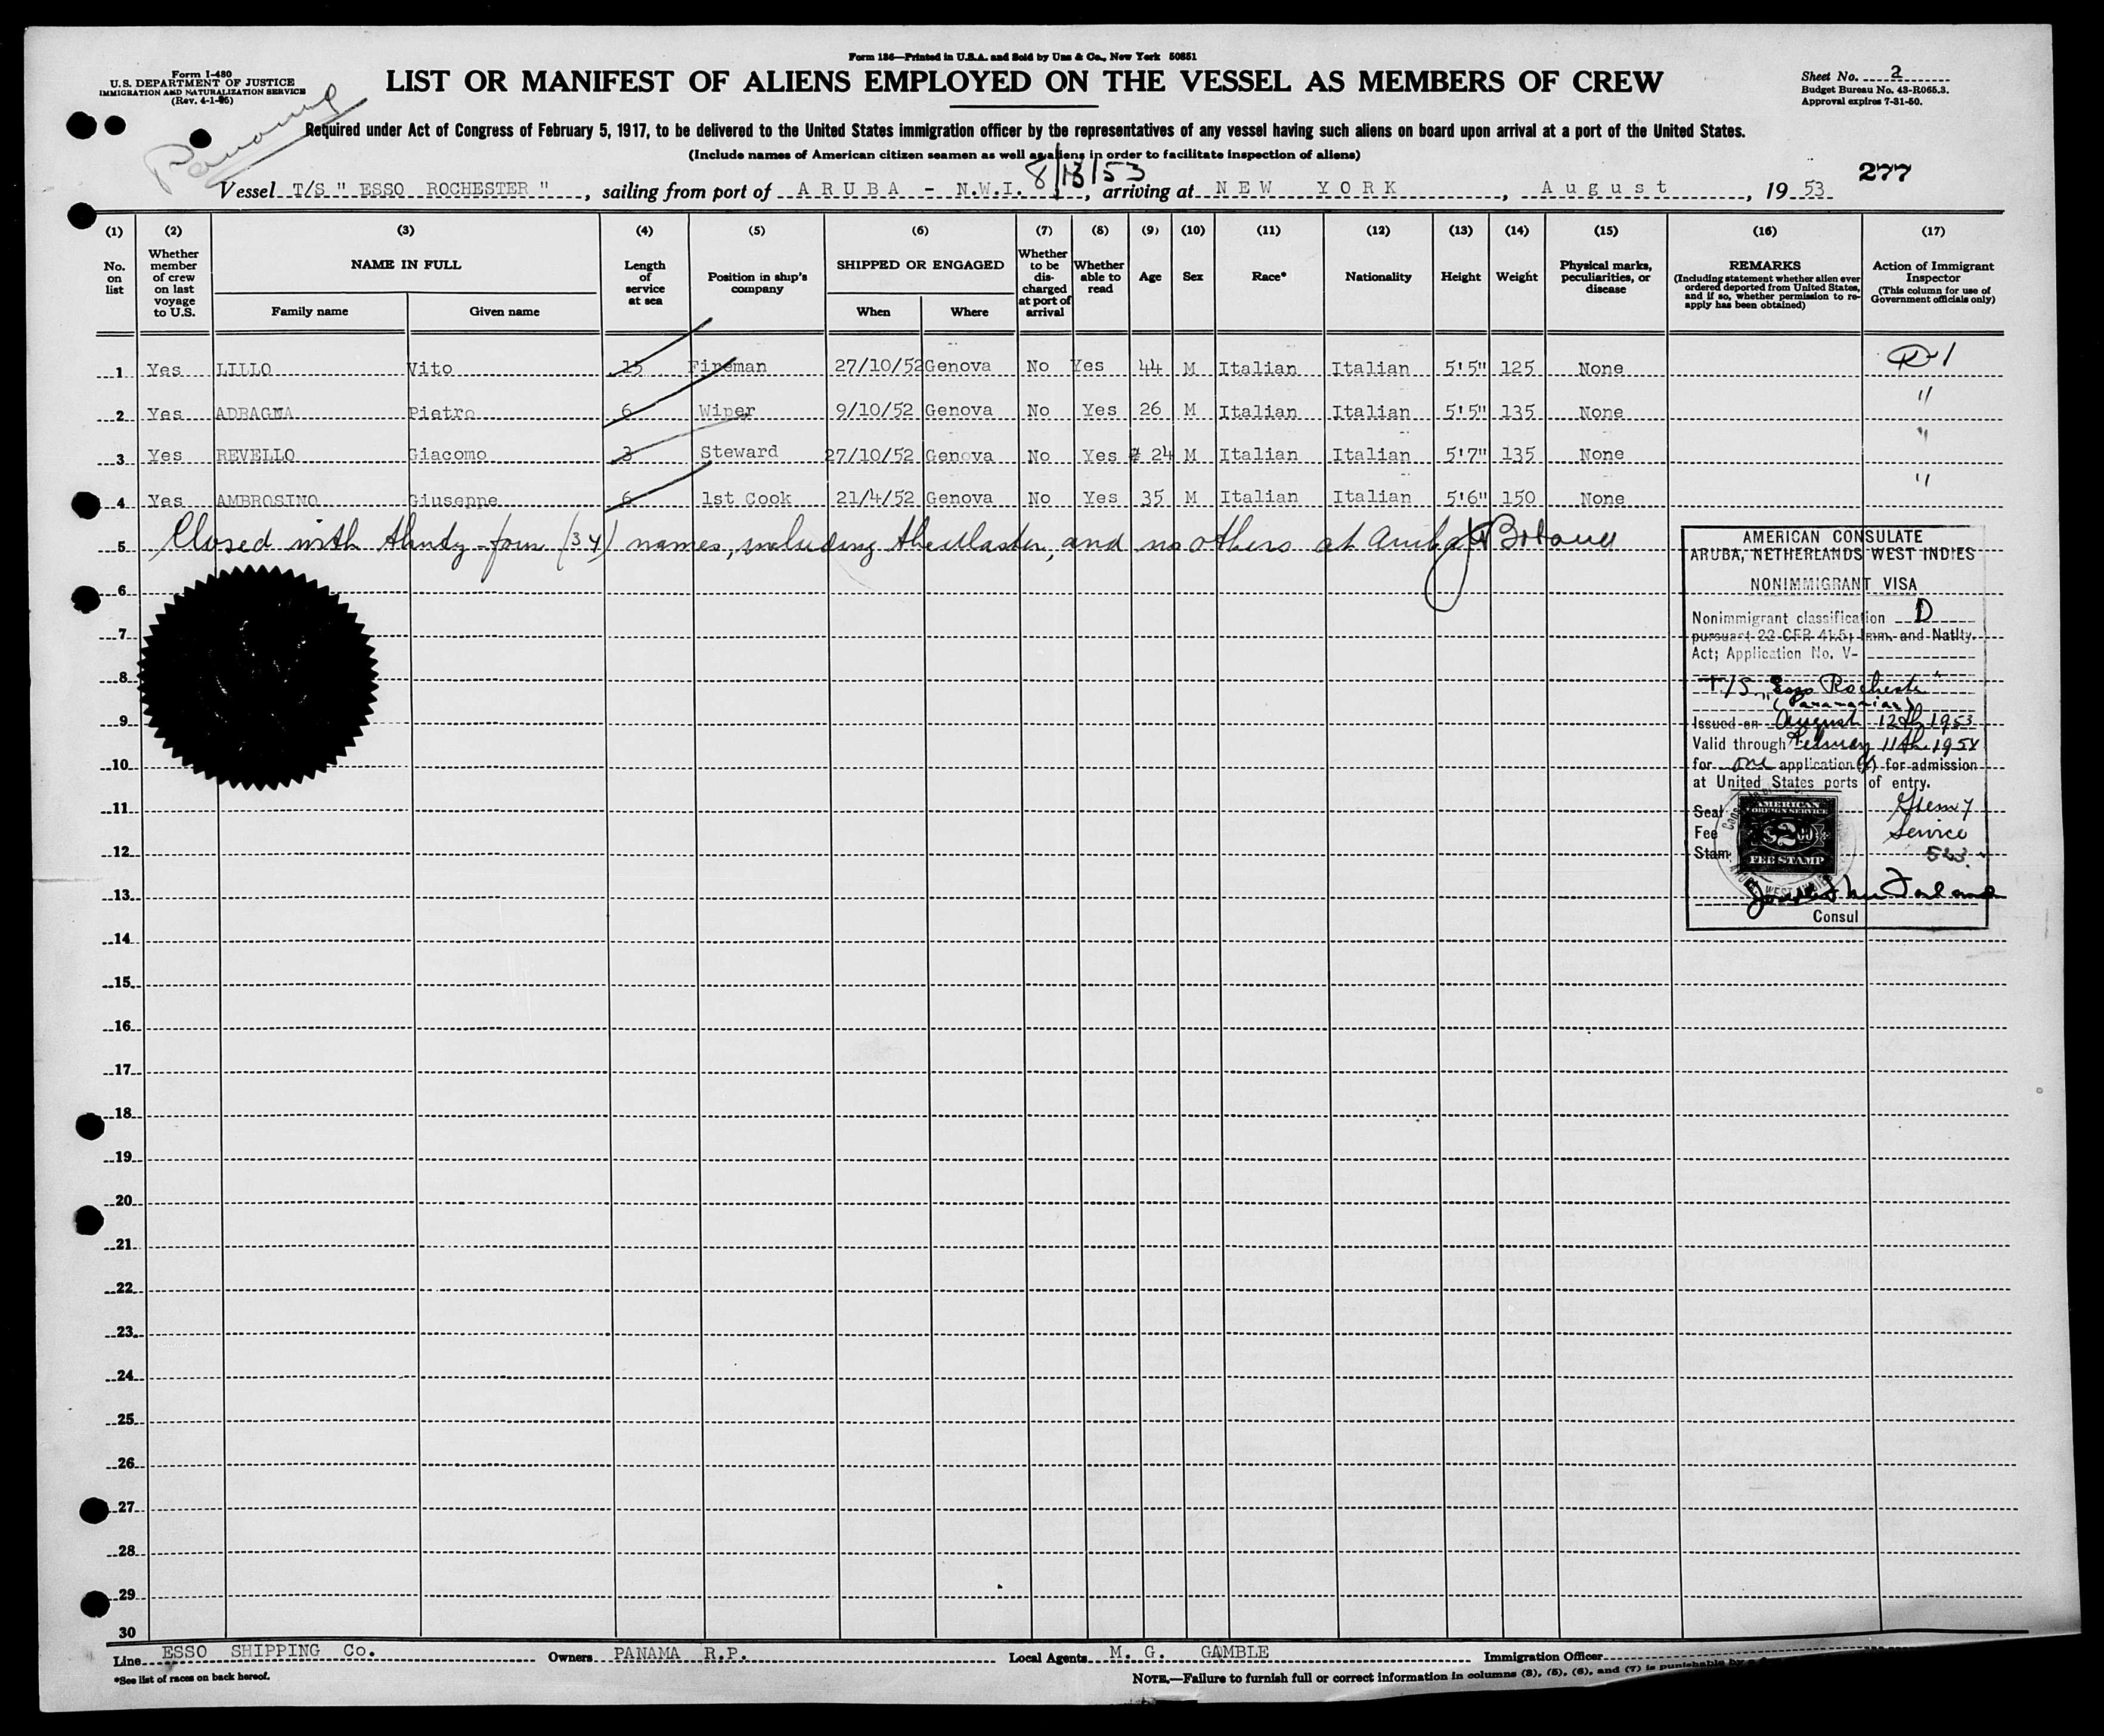 Form 136—Printed in U.S.A. and Sold by Unz & Co., New York 50851
Form I-480
U.S. DEPARTMENT OF JUSTICE
IMMIGRATION AND NATURALIZATION SERVICE
LIST OR MANIFEST OF ALIENS EMPLOYED ON THE VESSEL AS MEMBERS OF CREW
Sheet No. 2
Budget Bureau No. 43-R065.3.
Approval expires 7-31-50.
Required under Act of Congress of February 5, 1917, to be delivered to the United States immigration officer by the representatives of any vessel having such aliens on board upon arrival at a port of the United States.
(Include names of American citizen seamen as well as aliens in order to facilitate inspection of aliens)
8/13/53
277
Vessel T/S " ESSO ROCHESTER ", sailing from port of ARUBA - N.W.I., arriving at NEW YORK, August, 1953
(1) (2) (3) (4) (5) (6) (7) (8) (9) (10) (11) (12) (13) (14) (15) (16) (17)
No. on list
Whether member of crew on last voyage to U.S.
NAME IN FULL
Family name
Given name
Length of service at sea
Position in ship's company
SHIPPED OR ENGAGED
When
Where
Whether to be discharged at port of arrival
Whether able to read
Age
Sex
Race*
Nationality
Height
Weight
Physical marks, peculiarities, or disease
REMARKS
(Including statement whether alien ever ordered deported from United States, and if so, whether permission to re-apply has been obtained)
Action of Immigrant Inspector
(This column for use of Government officials only)
1 Yes LILLO Vito 15 Fireman 27/10/52 Genova No Yes 44 M Italian Italian 5'5" 125 None D-1
2 Yes ADRAGNA Pietro 6 Wiper 9/10/52 Genova No Yes 26 M Italian Italian 5'5" 135 None "
3 Yes REVELLO Giacomo 3 Steward 27/10/52 Genova No Yes 24 M Italian Italian 5'7" 135 None "
4 Yes AMBROSINO Giuseppe 6 1st Cook 21/4/52 Genova No Yes 35 M Italian Italian 5'6" 150 None "
5 Closed with thirty-four (34) names, including the Master, and no others at Aruba
6
7
8
9
10
11
12
13
14
15
16
17
18
19
20
21
22
23
24
25
26
27
28
29
30
AMERICAN CONSULATE
ARUBA, NETHERLANDS WEST INDIES
NONIMMIGRANT VISA
Nonimmigrant classification D
pursuant 22 CFR 41.5; Imm. and Natlty.
Act; Application No. V-
T/S "Esso Rochester"
(Panamanian)
Issued on August 12th 1953
Valid through February 11th 1954
for one application(s) for admission
at United States ports of entry.
Seal
Fee
Stamp
AMERICAN
FOREIGN SERVICE
$2.00
FEE STAMP
Service
523
Consul
Line ESSO SHIPPING Co. Owners PANAMA R.P. Local Agents M. G. GAMBLE Immigration Officer
*See list of races on back hereof.
NOTE.—Failure to furnish full or correct information in columns (3), (5), (6), and (7) is punishable by